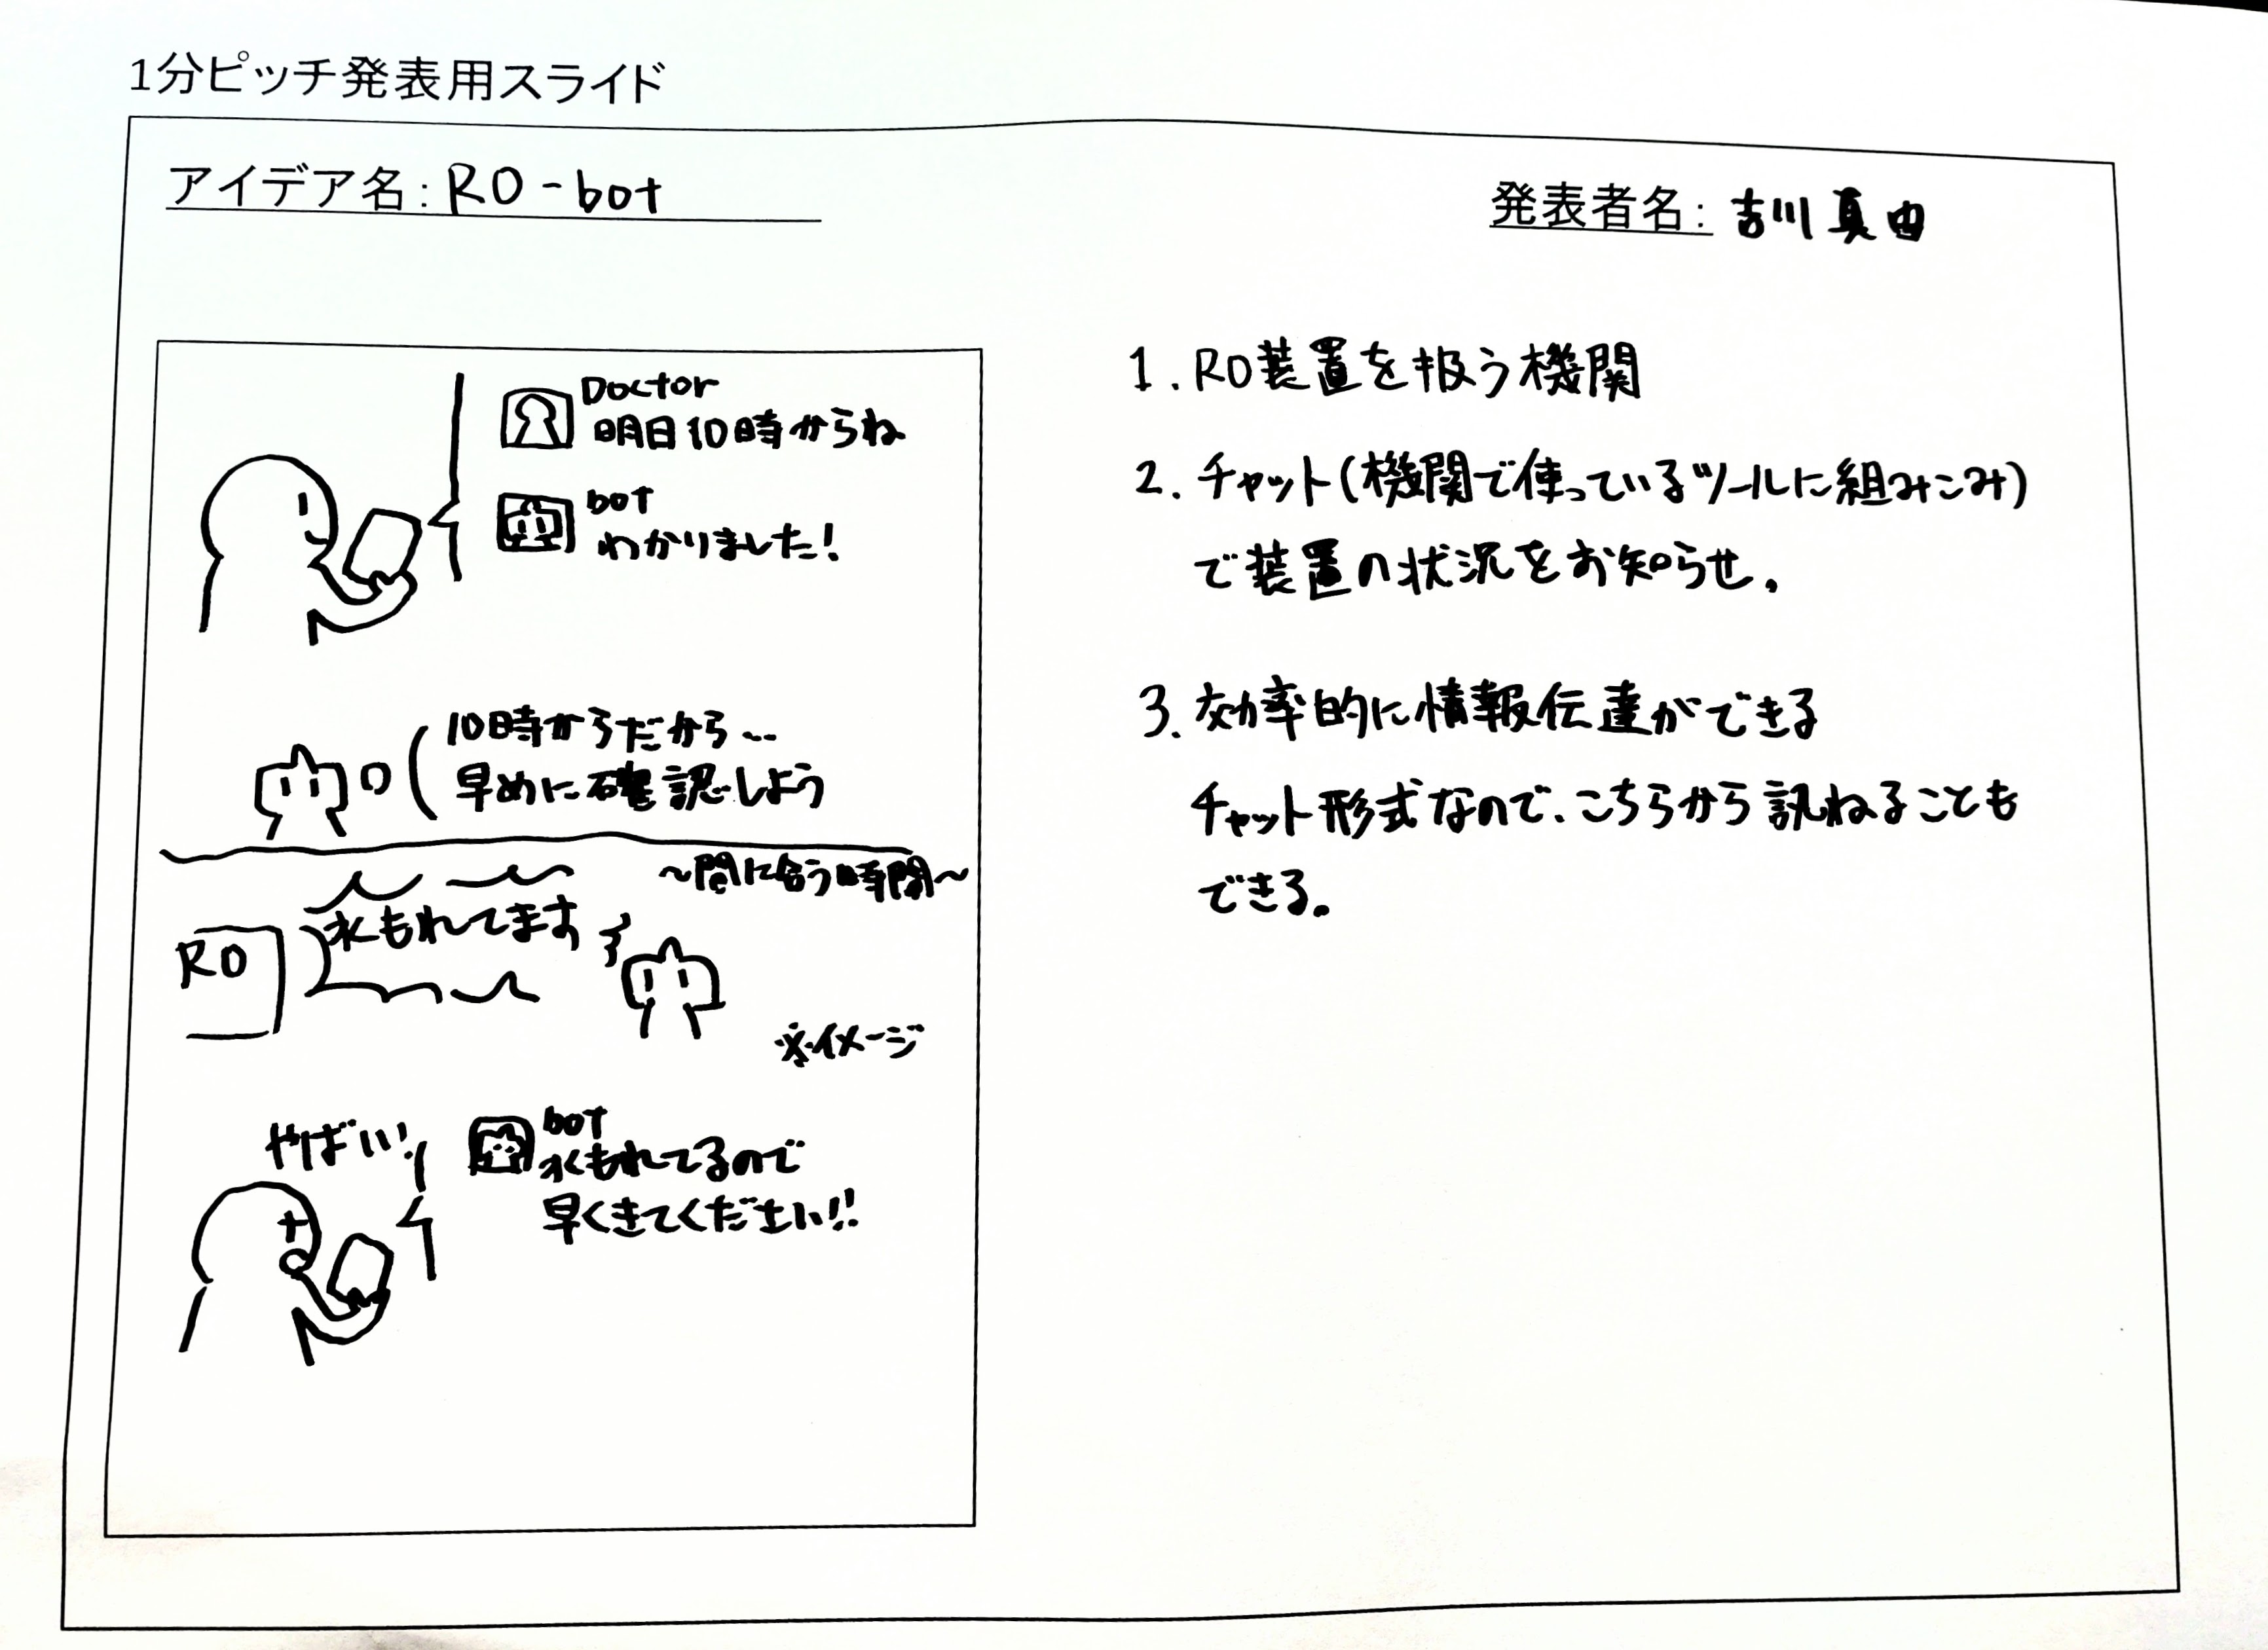 1分ピッチ発表用スライド
アイデア名：RO-bot
発表者名：吉川真由
Doctor
明日10時からね
bot
わかりました！
10時からだから…
早めに確認しよう
～間に合う時間～
水もれてます
RO
※イメージ
やばい！
bot
水もれてるので
早くきてください!!
1. RO装置を扱う機関
2. チャット(機関で使っているツールに組みこみ)
で装置の状況をお知らせ。
3. 効率的に情報伝達ができる
チャット形式なので、こちらから訊ねることも
できる。